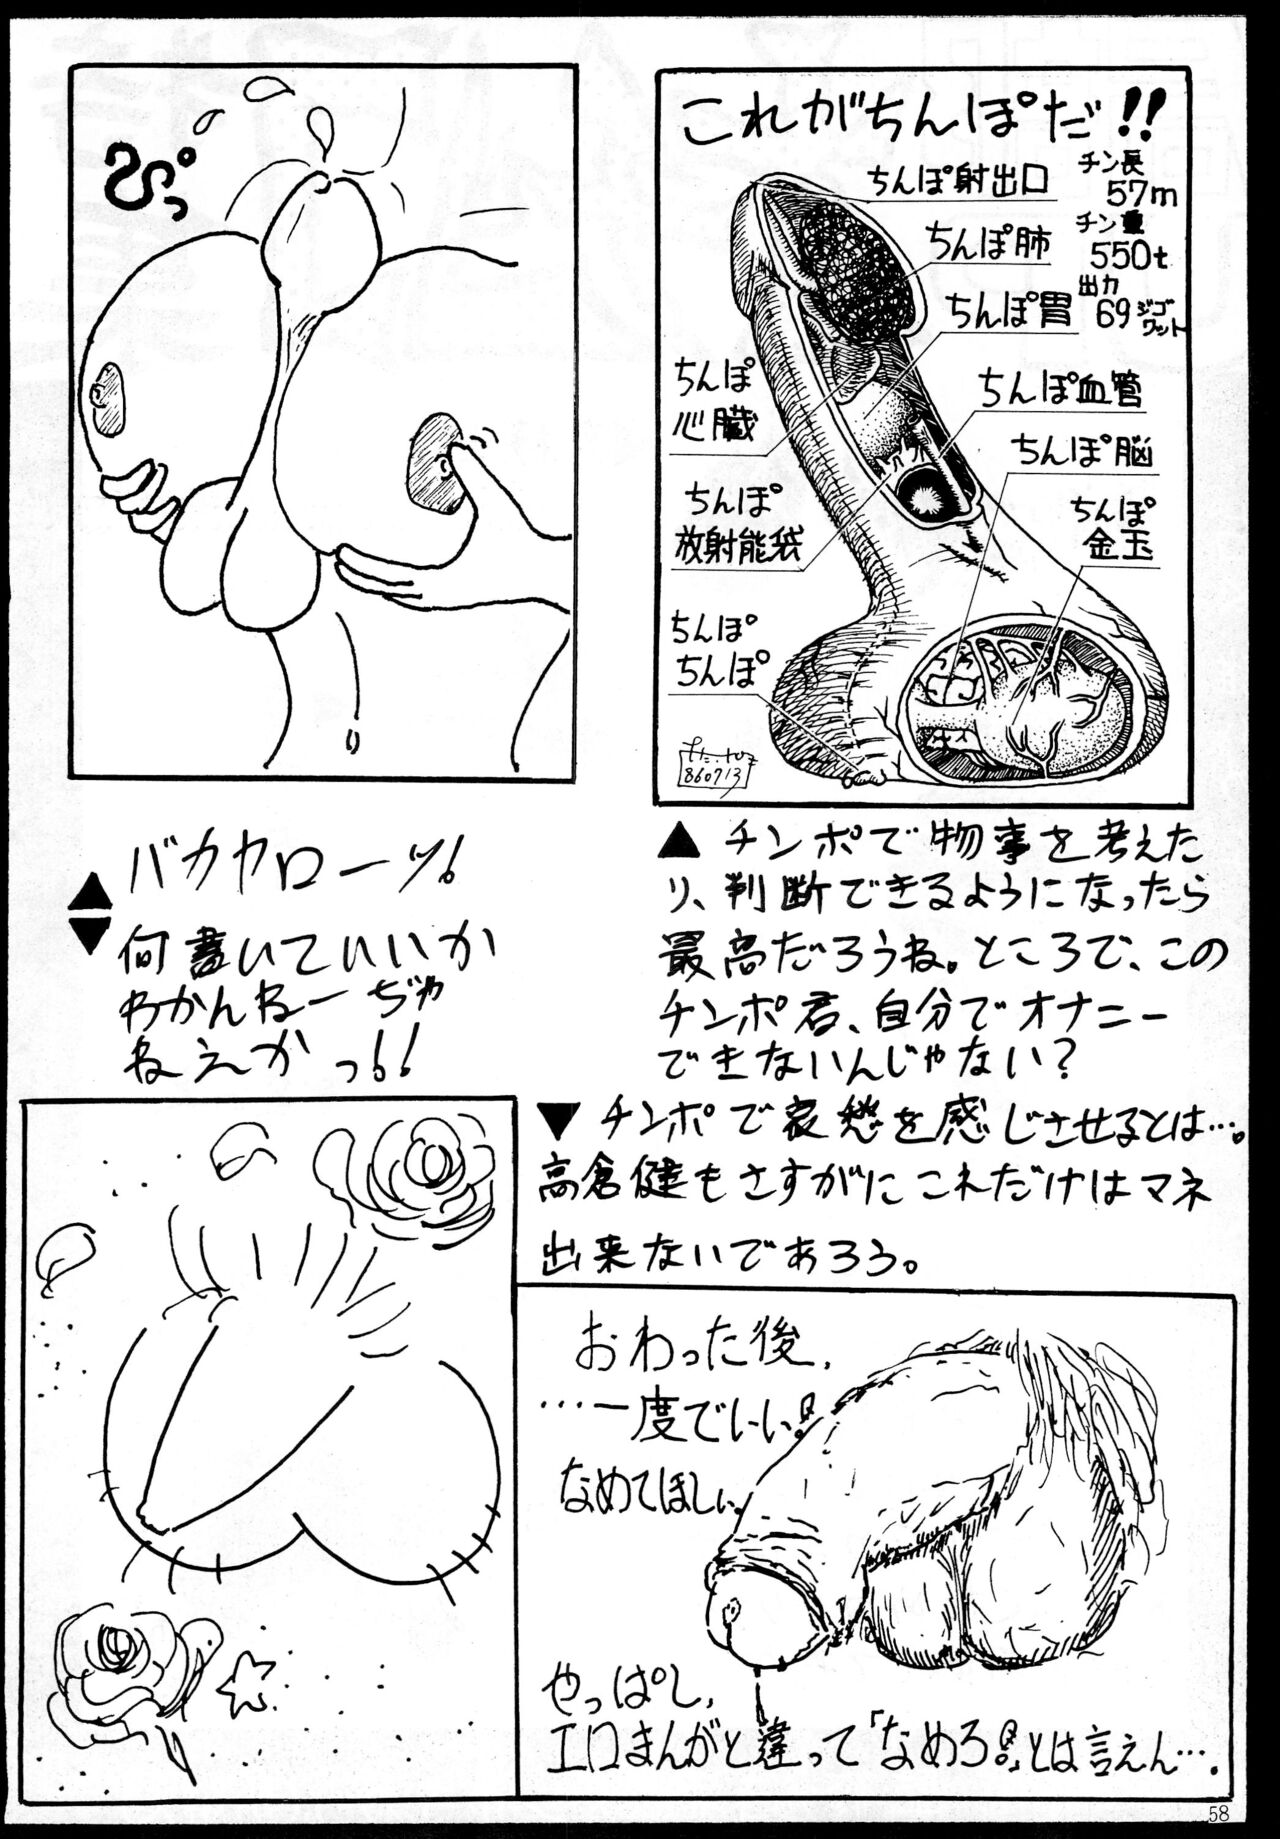 これがちんぽだ!!
チン長
57m
チン重
550t
出力
69ジゴワット
ちんぽ射出口
ちんぽ肺
ちんぽ胃
ちんぽ血管
ちんぽ脳
ちんぽ
金玉
ちんぽ
心臓
ちんぽ
放射能袋
ちんぽ
ちんぽ
860713
ぴっ
▲チンポで物事を考えた
り、判断できるようになったら
最高だろうね。ところで、この
チンポ君、自分でオナニー
できないんじゃない?
▲バカヤローッ!
▼何書いていいか
わかんねーぢゃ
ねえかっ!!
▼チンポで哀愁を感じさせるとは…。
高倉健もさすがにこれだけはマネ
出来ないであろう。
おわった後、
…一度でいい!
なめてほしい。
やっぱし、
エロまんがと違って「なめろ!」とは言えん…。
58